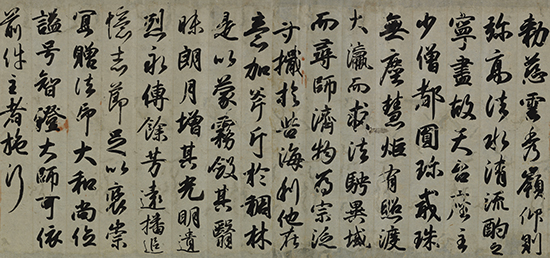 勅慈雲秀嶺仰則
弥高法水清流酌之
寧盡故天台座主
少僧都圓珎戒珠
無塵慧炬有照渡
大瀛而求法騁異域
而尋師濟物為宗泛
寸檝於苦海利他在
意加斧斤於稠林
是以蒙霧斂其翳
昧朗月増其光明遺
烈永傳餘芳遠播追
憶志節足以褒崇
冝贈法印大和尚位
謚号智證大師可依
前件主者施行